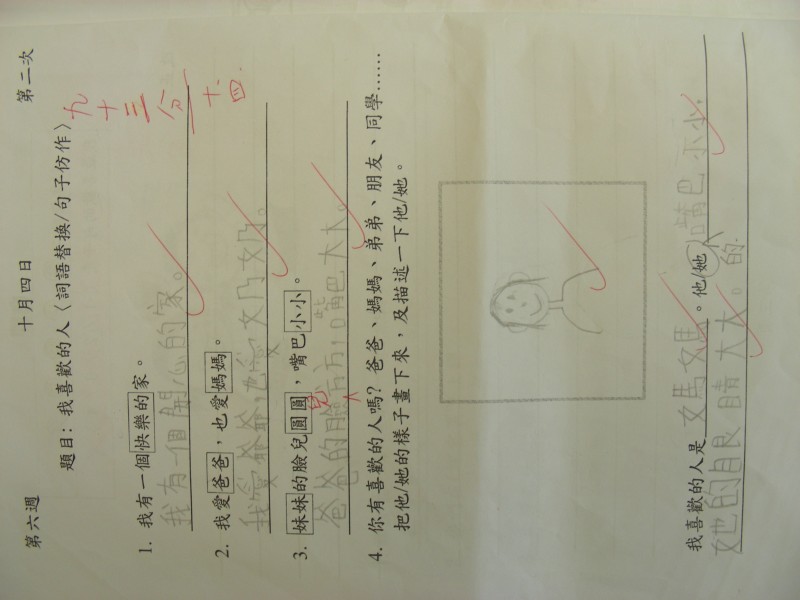 第六週 十月四日 第二次
題目：我喜歡的人〈詞語替換/句子仿作〉
九十三分
十.四.
1. 我有一個快樂的家。
我有一個開心的家。
2. 我愛爸爸，也愛媽媽。
我愛爺爺，也愛奶奶。
3. 妹妹的臉兒圓圓，嘴巴小小。
爸爸的臉兒方方，嘴巴大大。
4. 你有喜歡的人嗎？爸爸、媽媽、弟弟、朋友、同學……
把他/她的樣子畫下來，及描述一下他/她。
我喜歡的人是媽媽。他/她的嘴巴小小，
她的眼睛大大。